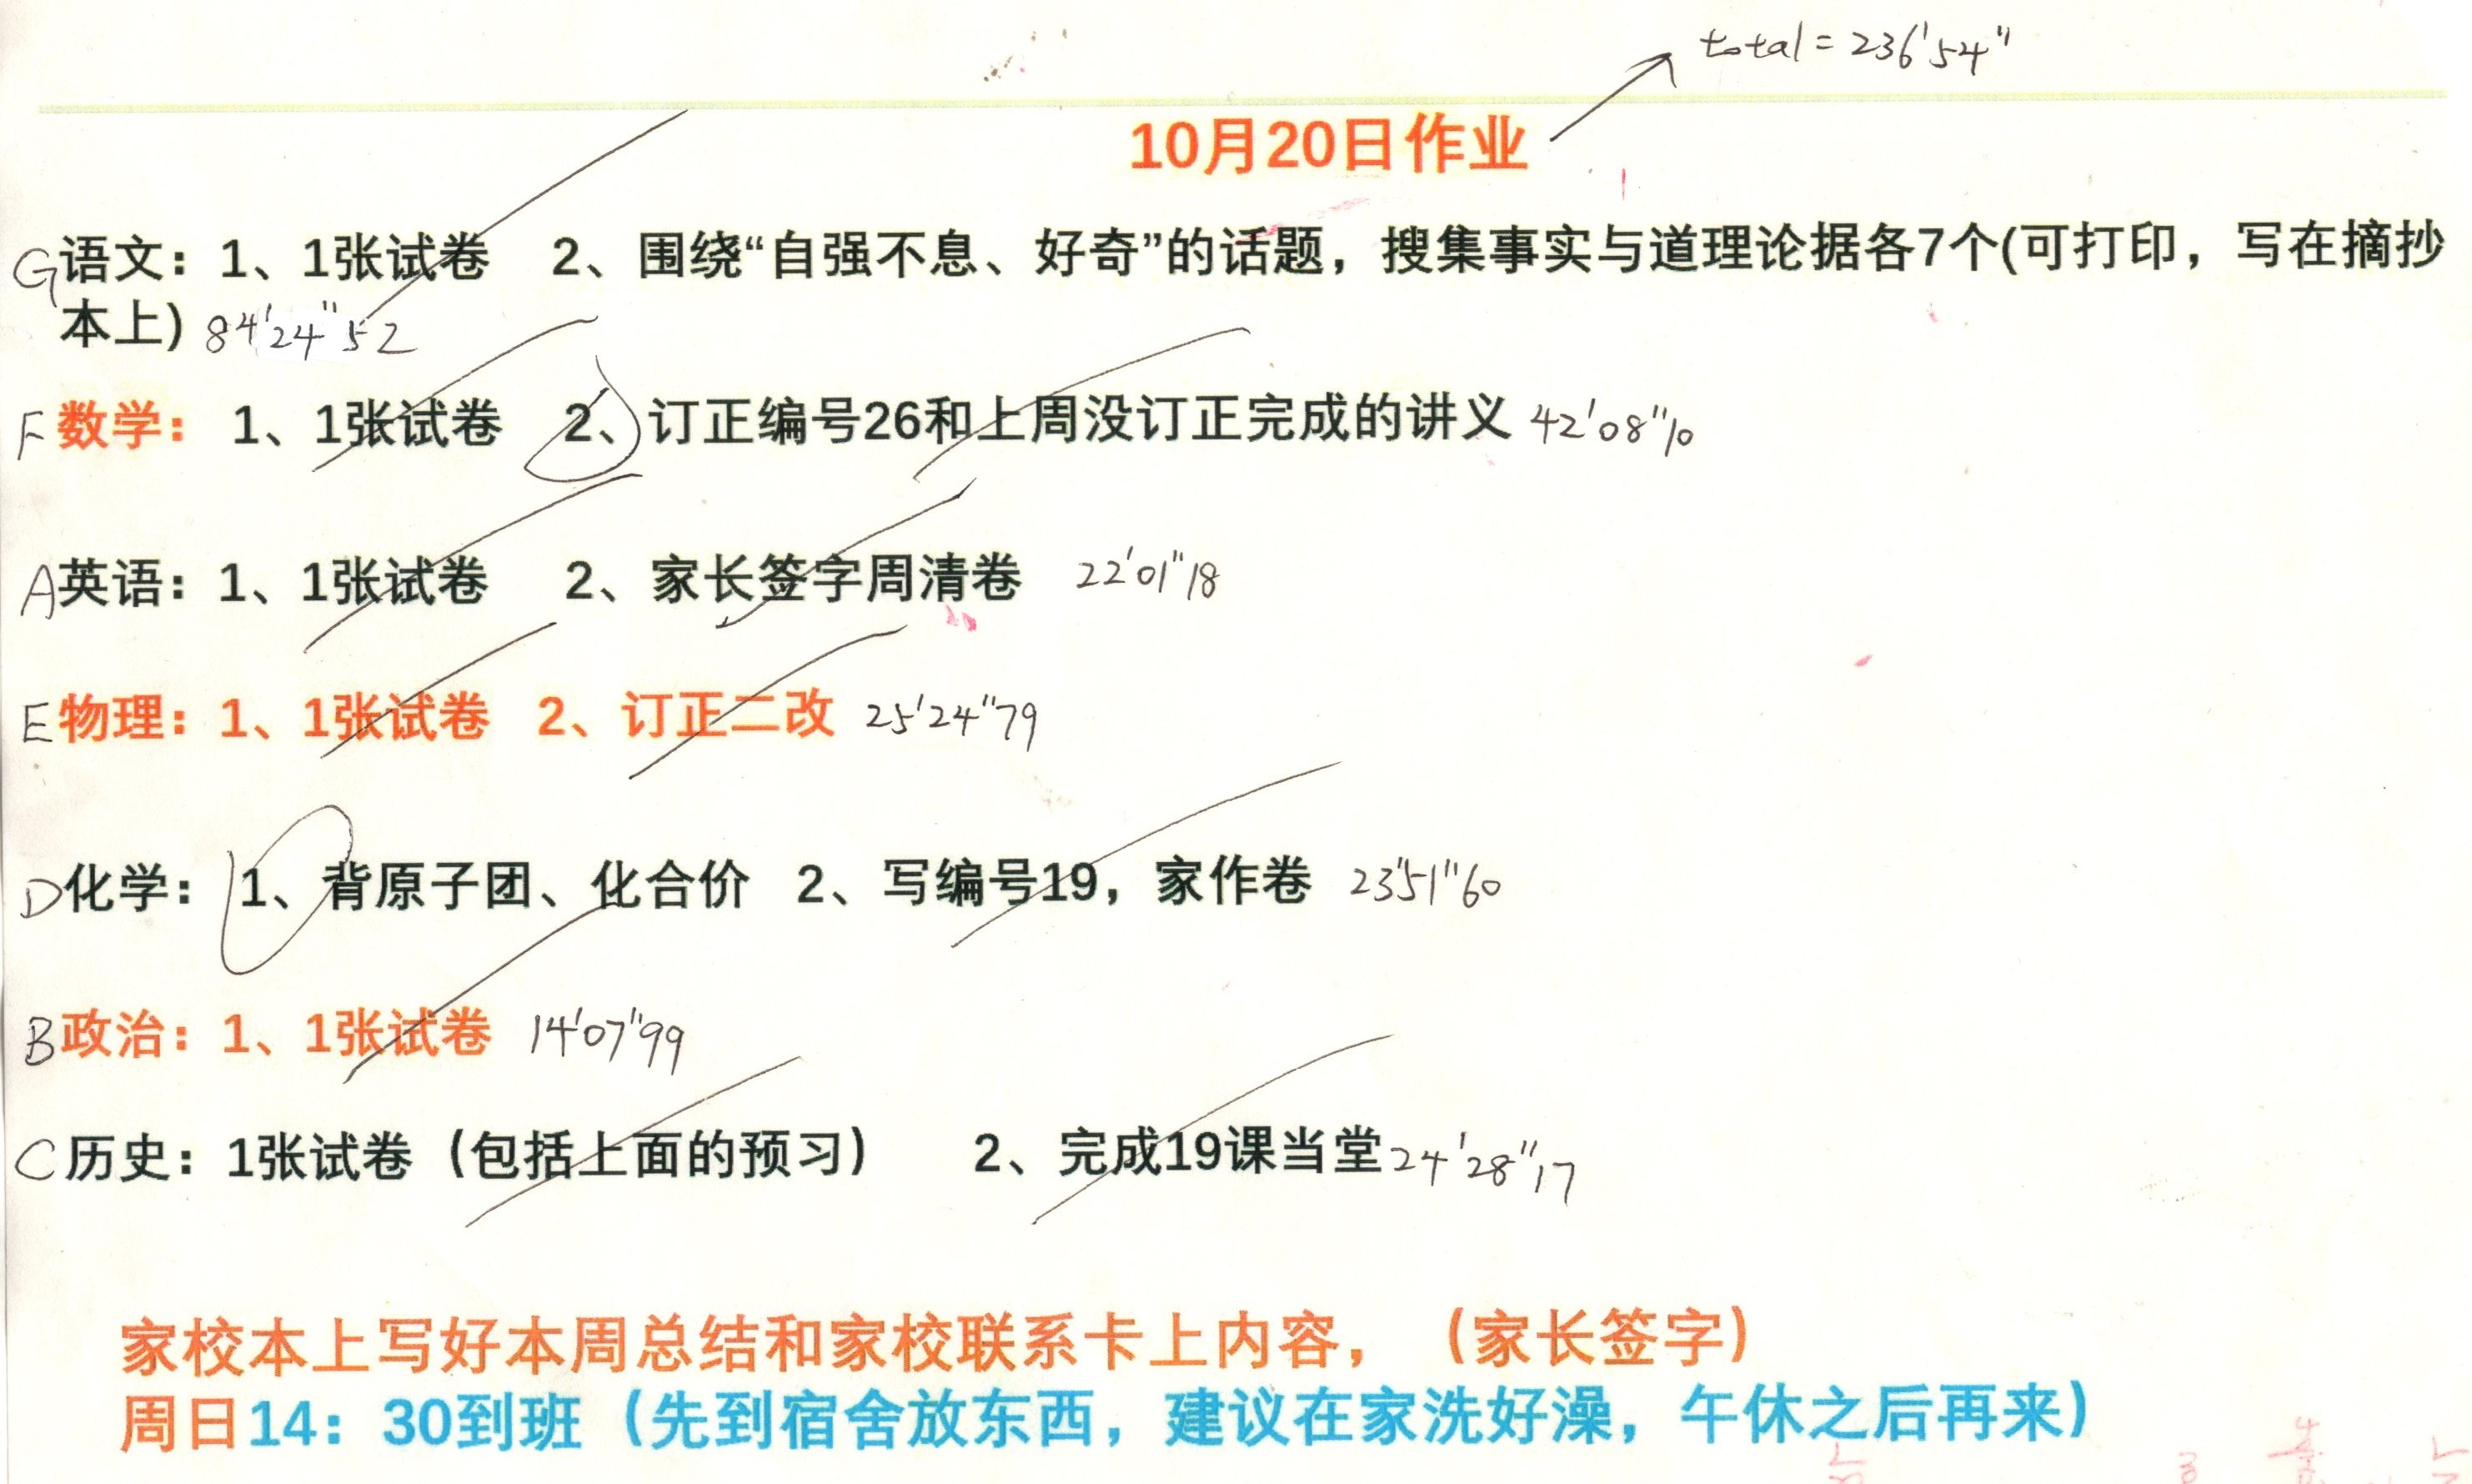 total = 236'54"
10月20日作业
G语文：1、1张试卷 2、围绕“自强不息、好奇”的话题，搜集事实与道理论据各7个(可打印，写在摘抄
本上) 84'24"52
F数学： 1、1张试卷 2、订正编号26和上周没订正完成的讲义 42'08"10
A英语：1、1张试卷 2、家长签字周清卷 22'01"18
E物理：1、1张试卷 2、订正二改 25'24"79
D化学： 1、背原子团、化合价 2、写编号19，家作卷 23'51"60
B政治：1、1张试卷 14'07"99
C历史：1张试卷（包括上面的预习） 2、完成19课当堂 24'28"17
家校本上写好本周总结和家校联系卡上内容，（家长签字）
周日14：30到班（先到宿舍放东西，建议在家洗好澡，午休之后再来）